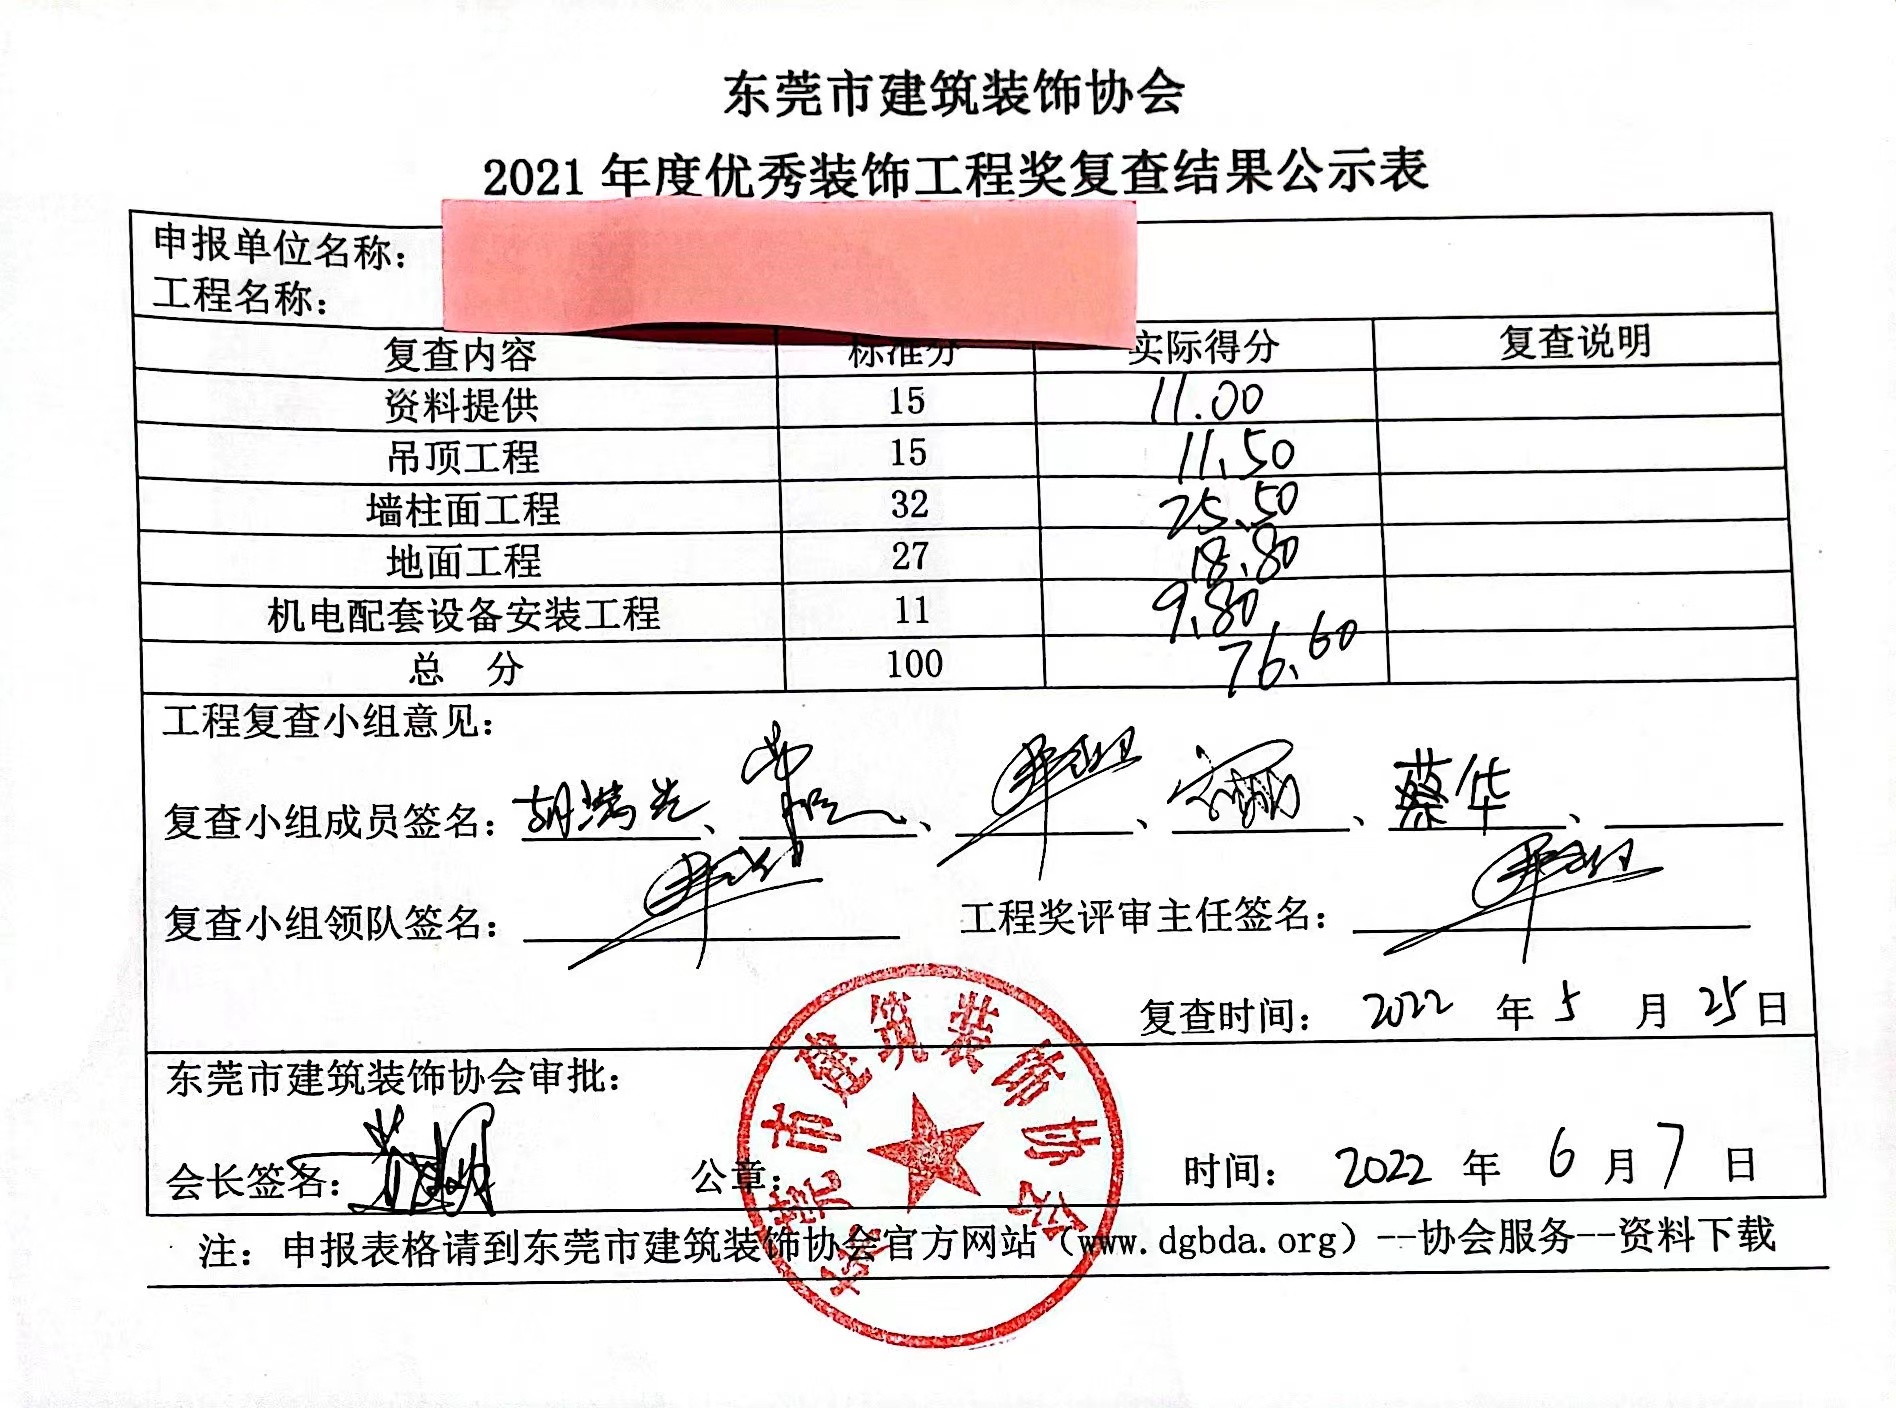 东莞市建筑装饰协会
2021 年度优秀装饰工程奖复查结果公示表
申报单位名称：
工程名称：
复查内容 标准分 实际得分 复查说明
资料提供 15 11.00
吊顶工程 15 11.50
墙柱面工程 32 25.50
地面工程 27 18.80
机电配套设备安装工程 11 9.80
总 分 100 76.60
工程复查小组意见：
复查小组成员签名：胡满光、 、 、 、蔡华、
复查小组领队签名： 工程奖评审主任签名：
复查时间： 2022 年 5 月 25 日
东莞市建筑装饰协会审批：
会长签名： 公章： 时间： 2022 年 6 月 7 日
东莞市建筑装饰协会
注：申报表格请到东莞市建筑装饰协会官方网站（www.dgbda.org）--协会服务--资料下载